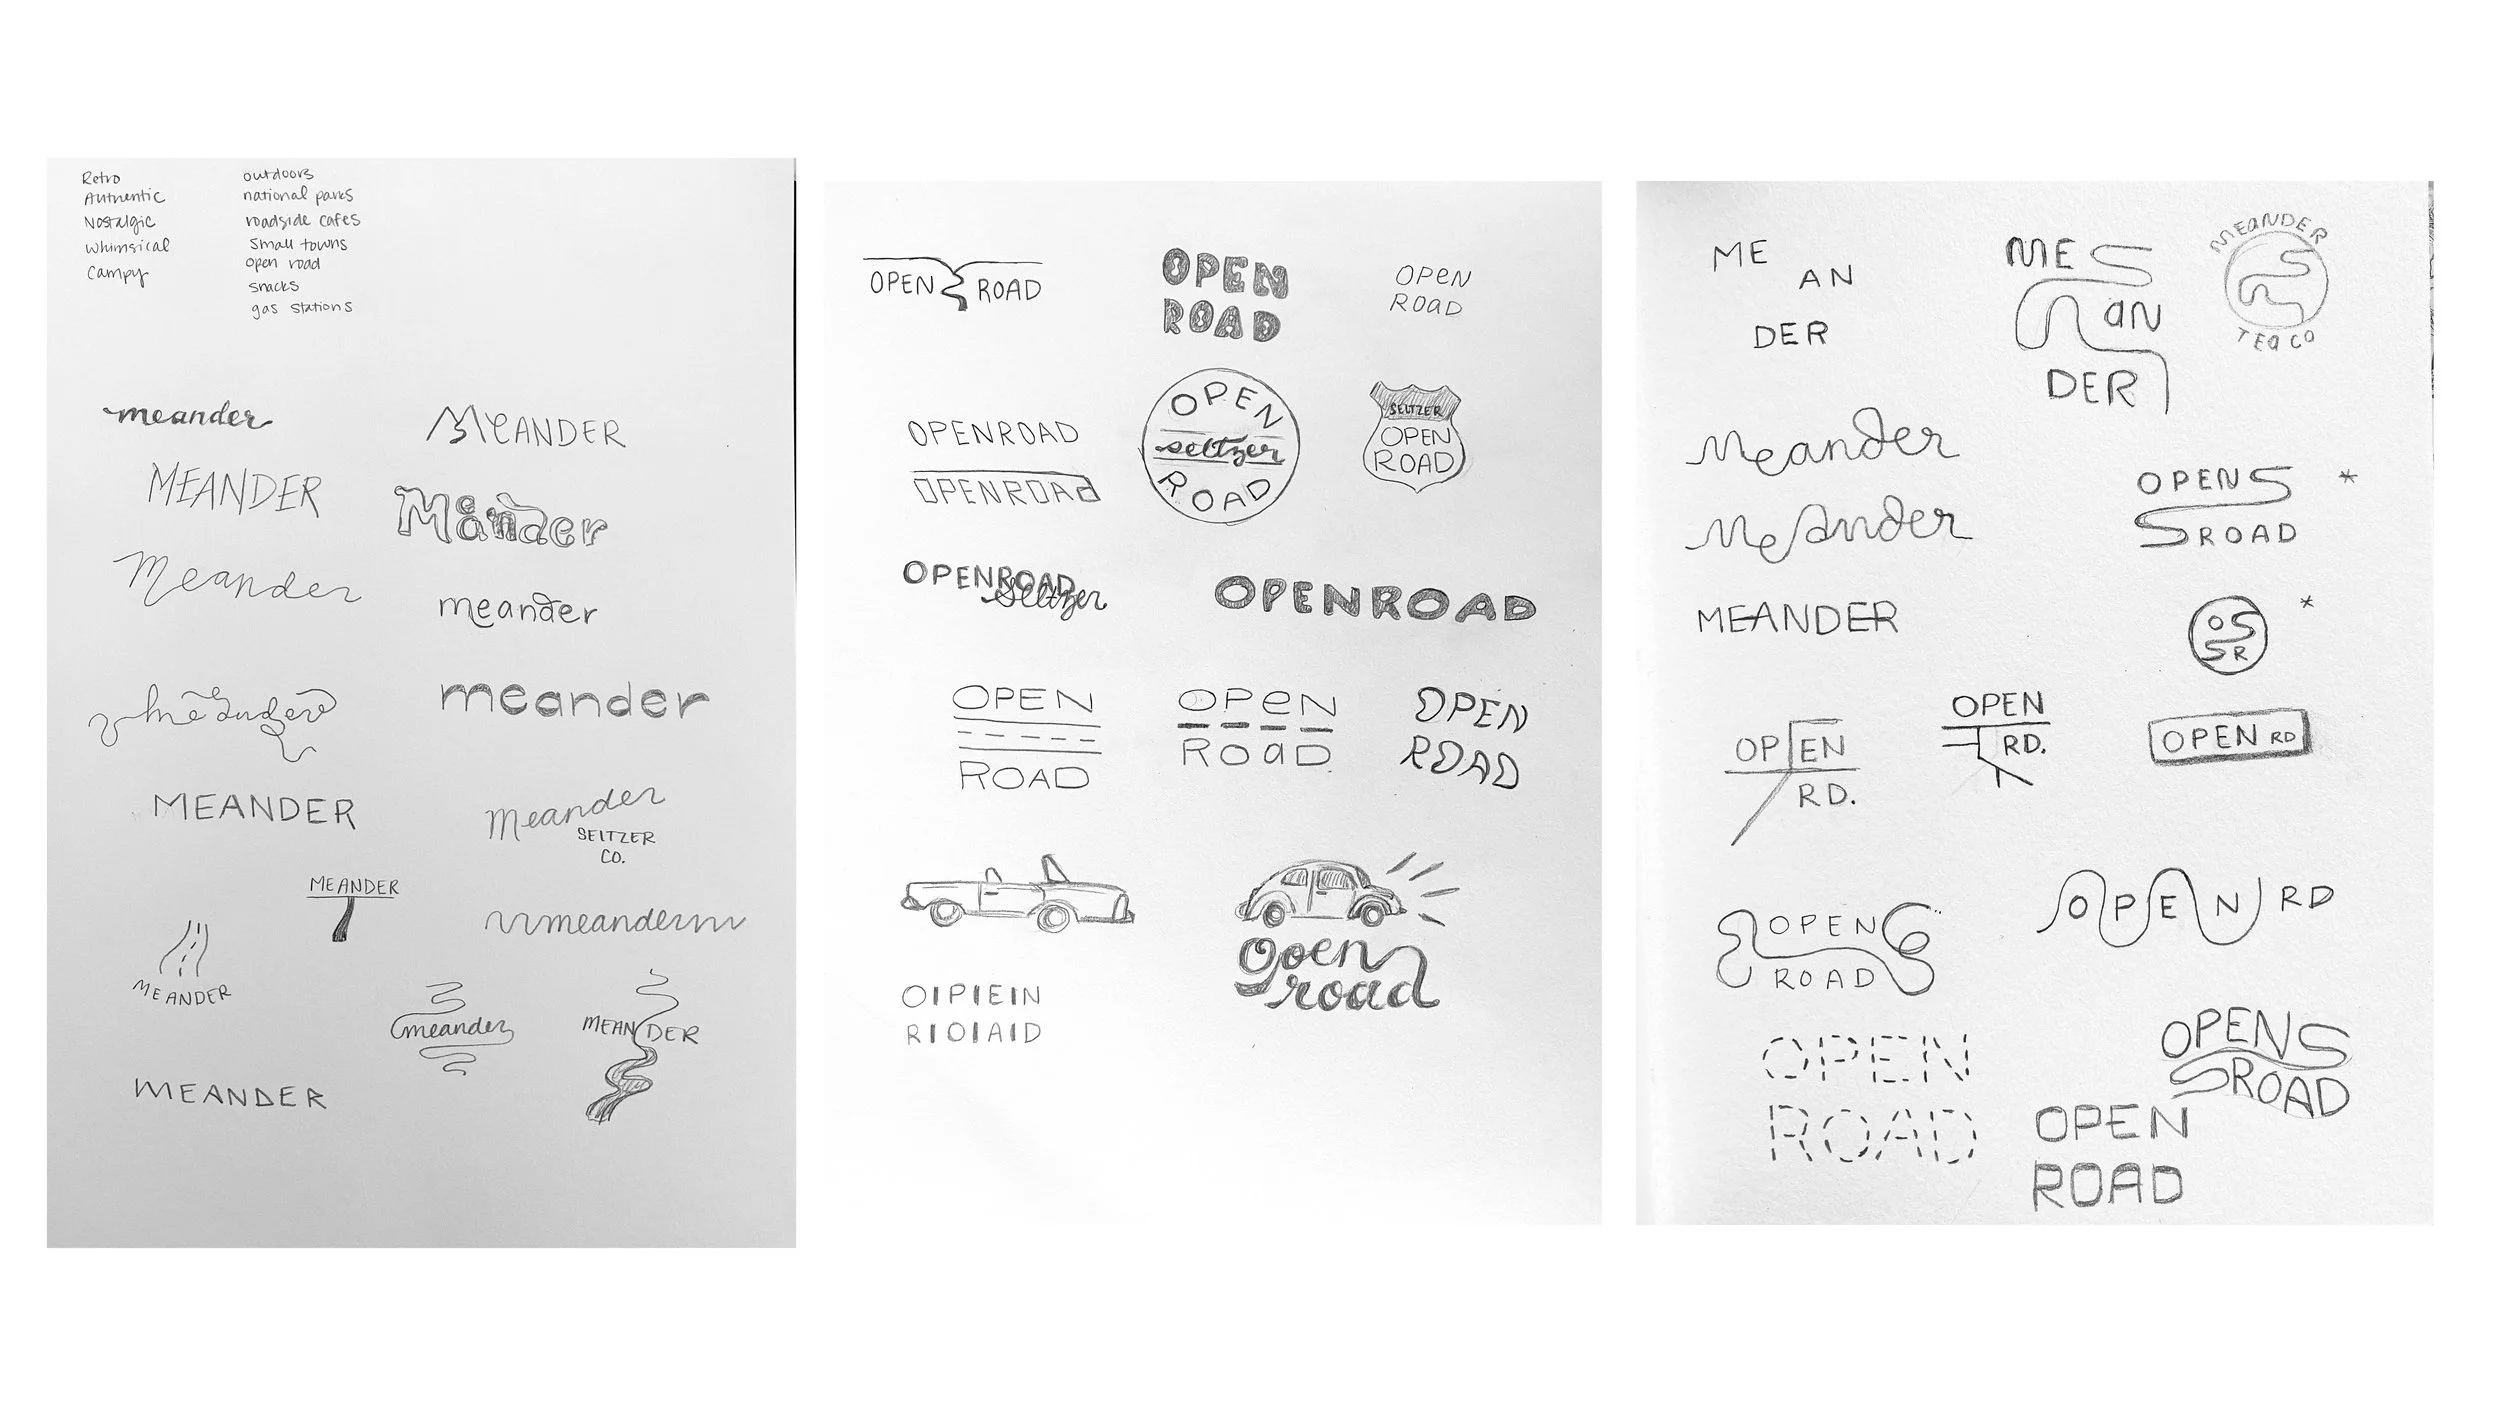 Retro
Authentic
Nostalgic
Whimsical
Campy
outdoors
national parks
roadside cafes
Small towns
open road
snacks
gas stations
meander
MeANDER
MEANDER
Meander
Meander
meander
meander
meander
MEANDER
Meander
SELTZER
CO.
MEANDER
meander
MEANDER
meander
MEANDER
MEANDER
OPEN ROAD
OPEN
ROAD
OPeN
ROaD
OPENROAD
OPENROAd
OPEN
seltzer
ROAD
SELTZER
OPEN
ROAD
OPENROAD
Seltzer
OPENROAD
OPEN
ROAD
OPeN
ROaD
OPEN
ROAD
open
road
O|P|E|N
R|O|A|D
ME
AN
DER
ME
aN
DER
MEaNDER
TEa CO
Meander
Meander
MEANDER
OPEN
ROAD
OS
SR
OPEN
RD.
OPEN
RD.
OPEN RD
OPEN
ROAD
OPEN RD
OPEN
ROAD
OPEN
ROAD
OPEN
ROAD